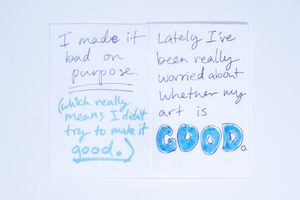 I made it
bad on
purpose.
(which really
means I didn't
try to make it
good.)
Lately I've
been really
worried about
whether my
art is
GOOD.